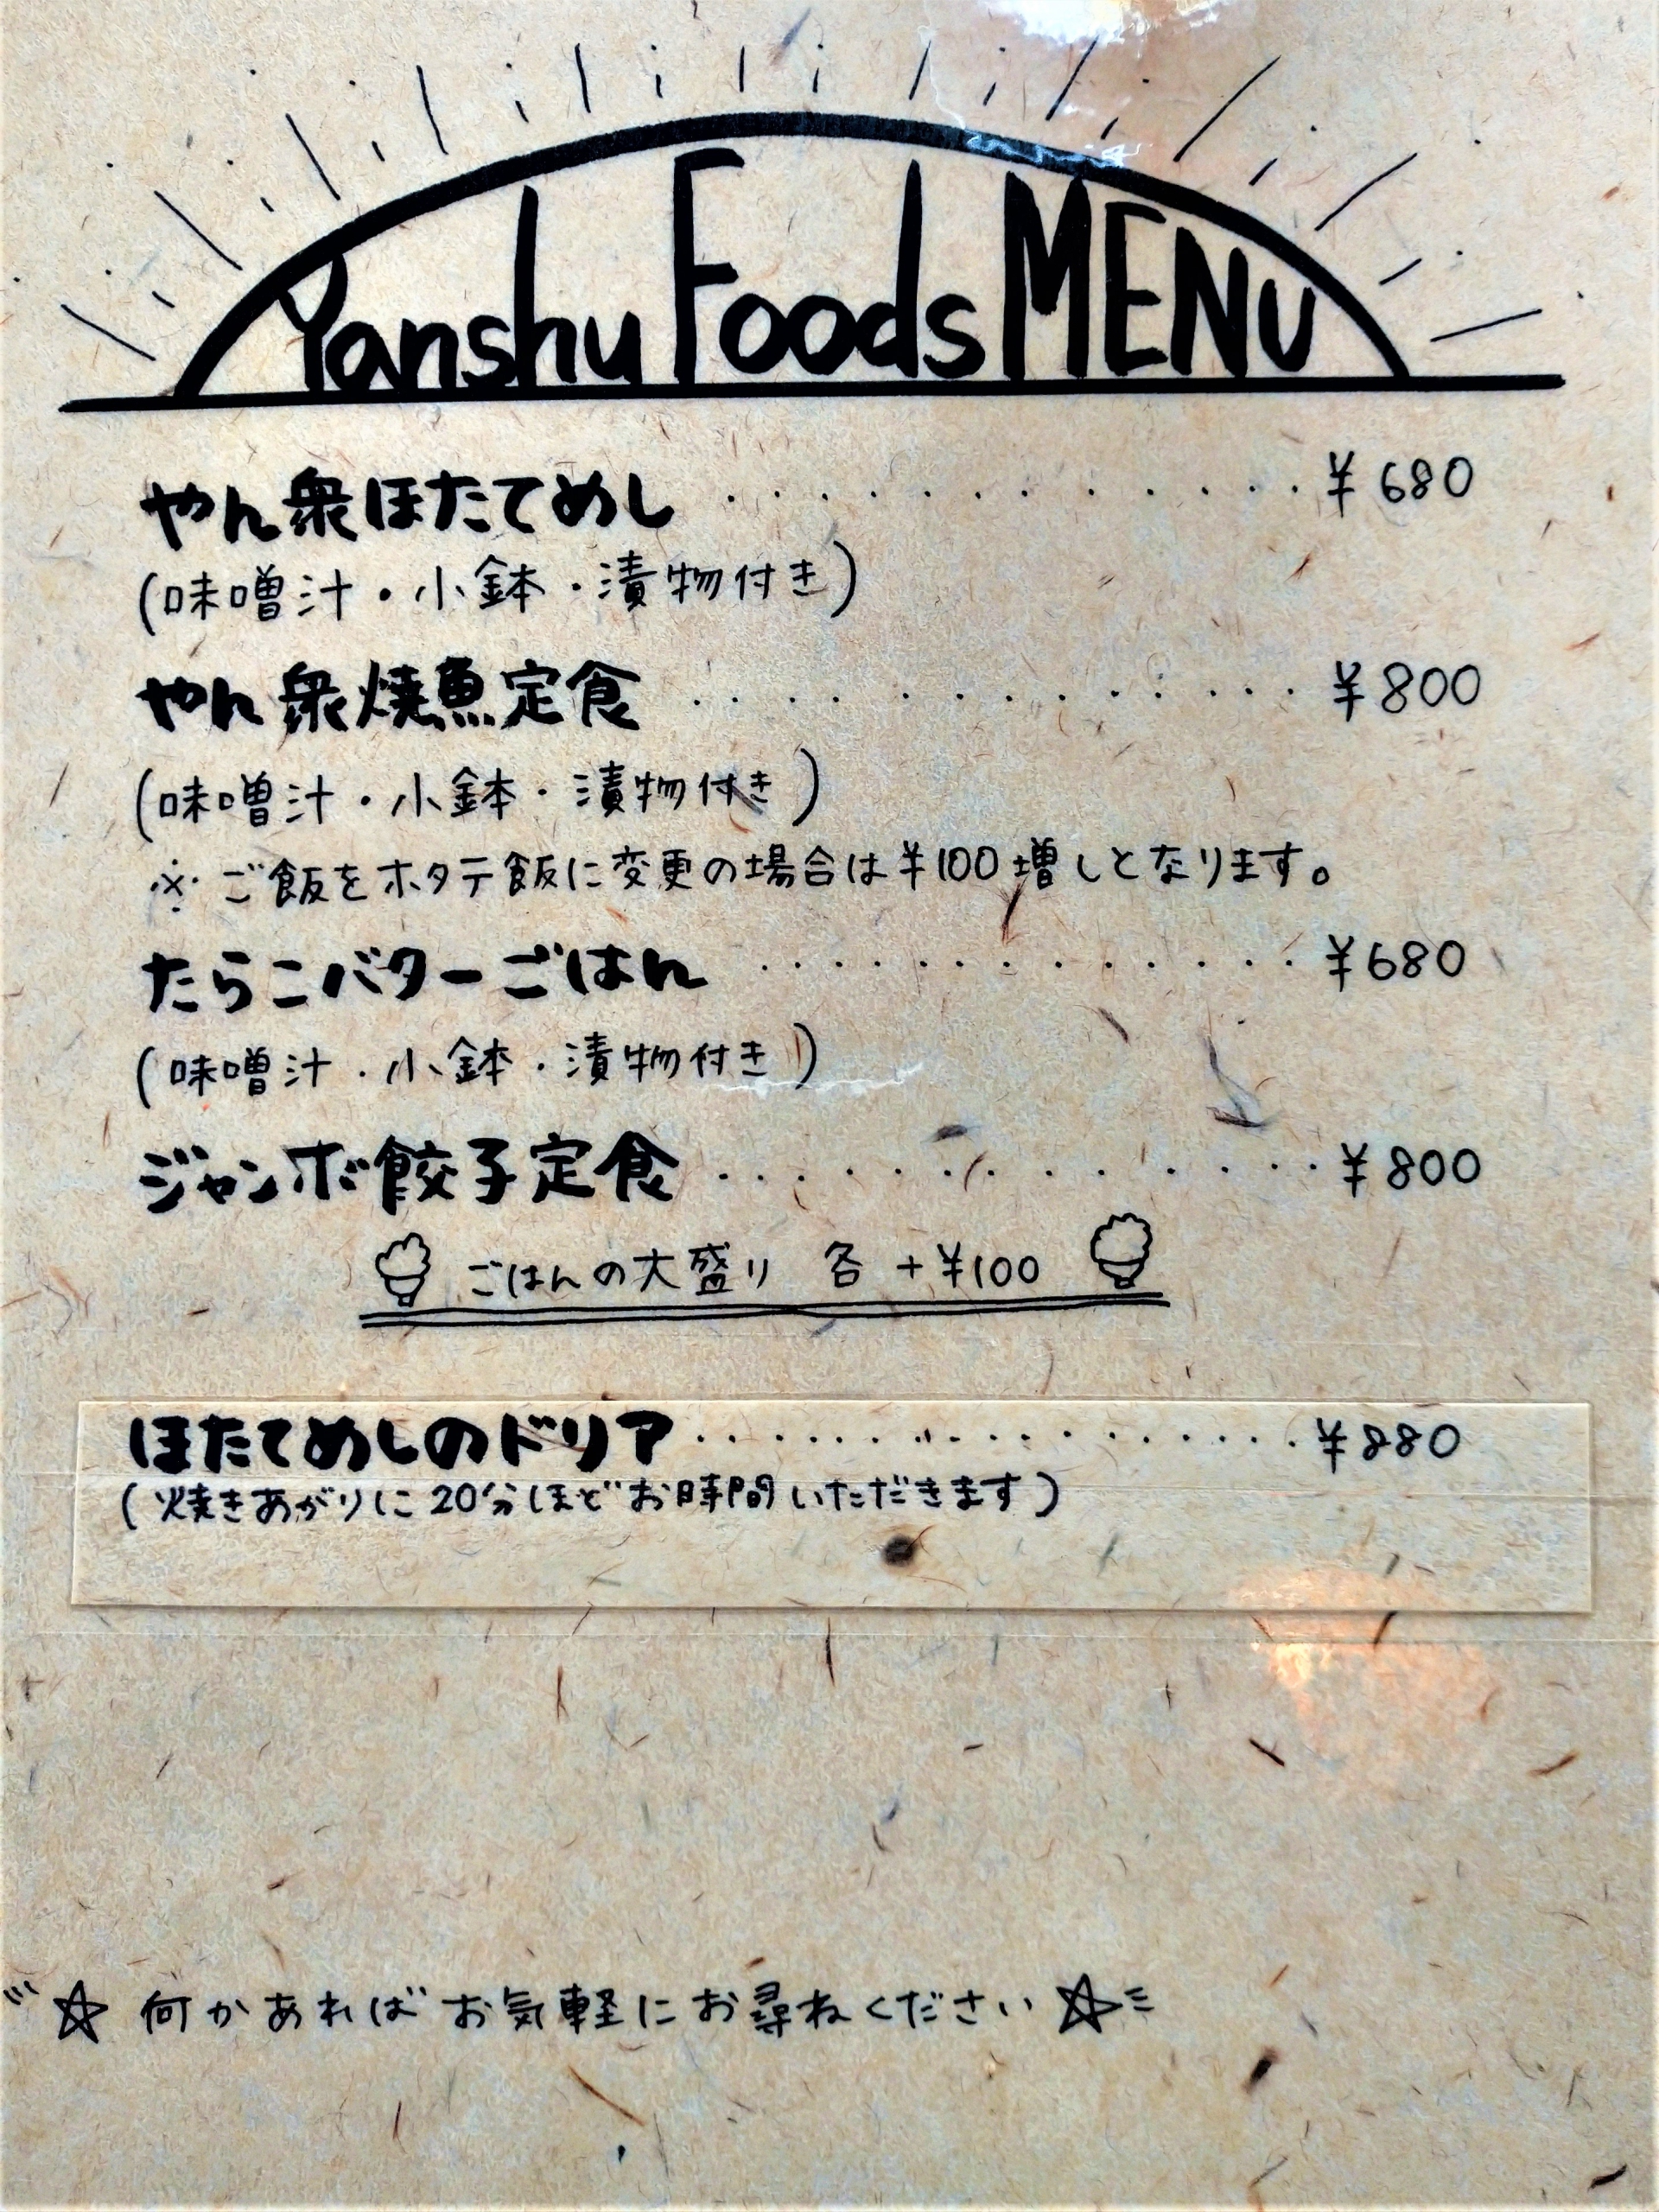 Yanshu Foods MENU
やん衆ほたてめし ・・・・・・・・・・・・・ ¥680
(味噌汁・小鉢・漬物付き)
やん衆焼魚定食 ・・・・・・・・・・・・・ ¥800
(味噌汁・小鉢・漬物付き)
※ ご飯をホタテ飯に変更の場合は¥100増しとなります。
たらこバターごはん ・・・・・・・・・・・・・ ¥680
(味噌汁・小鉢・漬物付き)
ジャンボ餃子定食 ・・・・・・・・・・・・・・ ¥800
ごはんの大盛り 各 +¥100
ほたてめしのドリア ・・・・・・・・・・・・・・・・ ¥880
(焼きあがりに20分ほどお時間いただきます)
☆ 何かあればお気軽にお尋ねください ☆